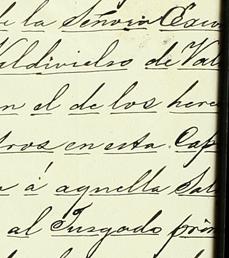 de la Señora Exc
Valdivielso de Val
en el de los here
tros en esta Cap
a á aquella Sal
al Jusgado prim